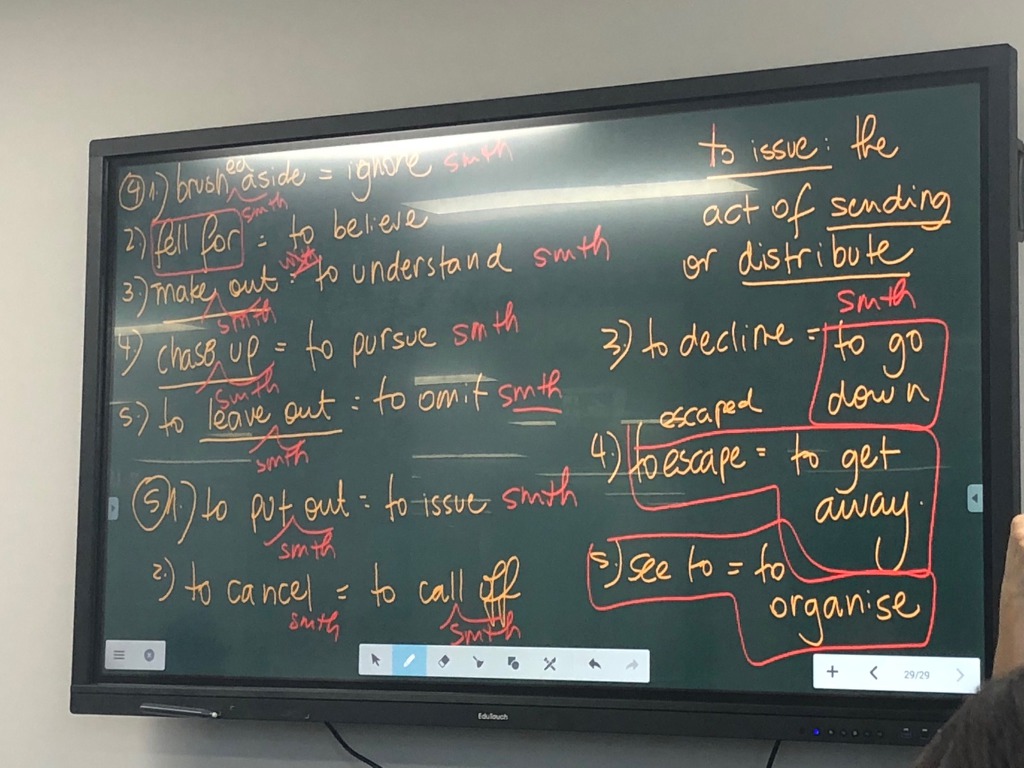 ④ 1.) brushed aside = ignore smth
smth
2.) fell for = to believe
smth
3.) make out = to understand smth
smth
4.) chase up = to pursue smth
smth
5.) to leave out = to omit smth
smth
⑤ 1.) to put out = to issue smth
smth
2.) to cancel = to call off
smth smth
to issue: the
act of sending
or distribute
smth
3.) to decline = to go
down
escaped
4.) to escape = to get
away.
5.) see to = to
organise
29/29
EduTouch